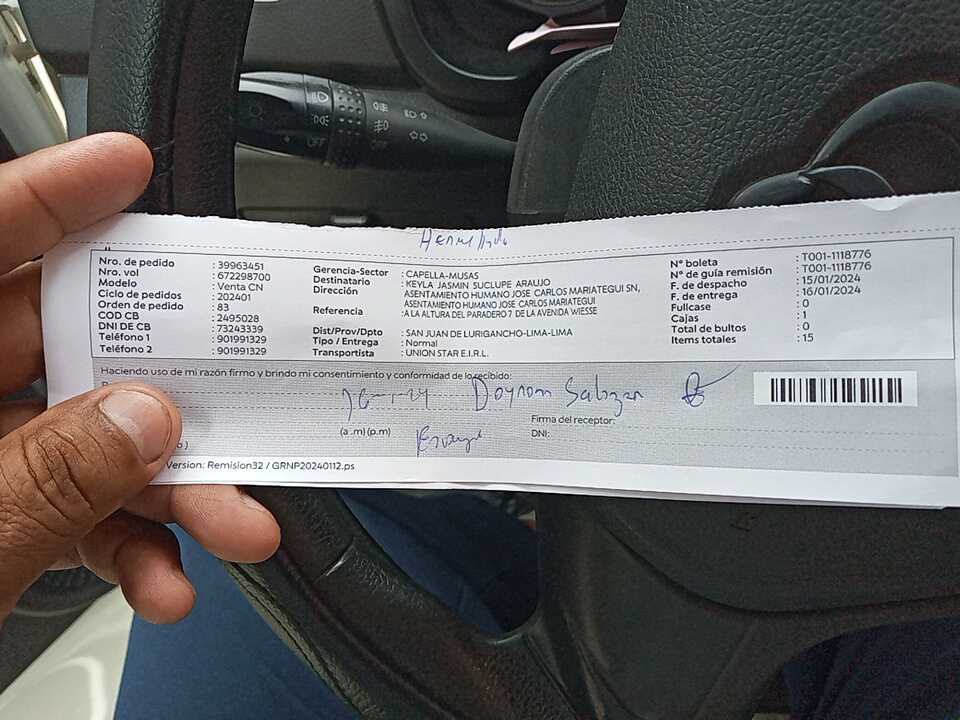 Nro. de pedido : 39963451
Nro. vol : 672298700
Modelo : Venta CN
Ciclo de pedidos : 202401
Orden de pedido : 83
COD CB : 2495028
DNI DE CB : 73243339
Teléfono 1 : 901991329
Teléfono 2 : 901991329
Gerencia-Sector : CAPELLA-MUSAS
Destinatario : KEYLA JASMIN SUCLUPE ARAUJO
Dirección : ASENTAMIENTO HUMANO JOSE CARLOS MARIATEGUI SN,
ASENTAMIENTO HUMANO JOSE CARLOS MARIATEGUI
Referencia : A LA ALTURA DEL PARADERO 7 DE LA AVENIDA WIESSE
Dist/Prov/Dpto : SAN JUAN DE LURIGANCHO-LIMA-LIMA
Tipo / Entrega : Normal
Transportista : UNION STAR E.I.R.L.
N° boleta : T001-1118776
N° de guía remisión : T001-1118776
F. de despacho : 15/01/2024
F. de entrega : 16/01/2024
Fullcase : 0
Cajas : 1
Total de bultos : 0
Items totales : 15
Haciendo uso de mi razón firmo y brindo mi consentimiento y conformidad de lo recibido:
16-1-24
(a .m) (p.m)
Firma del receptor:
DNI:
Version: Remision32 / GRNP20240112.ps
OFF